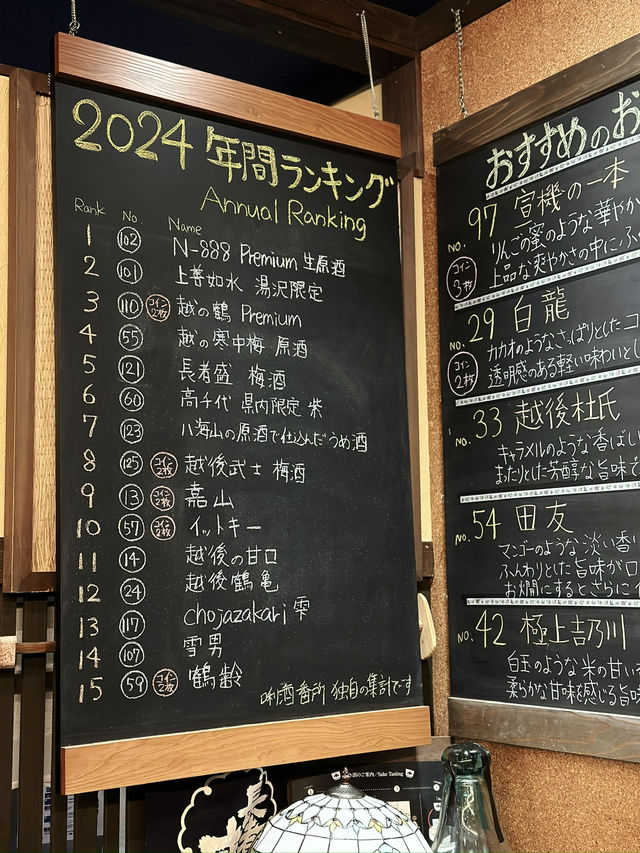 2024 年間ランキング
Annual Ranking
Rank No. Name
1 102 N-888 Premium 生原酒
2 101 上善如水 湯沢限定
3 110 コイン2枚 越の鶴 Premium
4 55 越の寒中梅 原酒
5 121 長者盛 梅酒
6 60 高千代 県内限定 柴
7 123 八海山の原酒で仕込んだうめ酒
8 125 コイン2枚 越後武士 梅酒
9 13 コイン2枚 嘉山
10 57 コイン2枚 イットキー
11 14 越後の甘口
12 24 越後鶴亀
13 117 chojazakari 雫
14 107 雪男
15 59 コイン2枚 鶴齢
唎酒番所 独自の集計です
おすすめのお
NO. 97 宣機の一本
コイン3枚
りんごの蜜のような華やか
上品な爽やかさの中に
NO. 29 白龍
コイン2枚
カカオのようなさっぱりとしたコ
透明感のある軽い味わいと
NO. 33 越後杜氏
キャラメルのような香ばし
まったりとした芳醇な旨味で
NO. 54 田友
マンゴーのような淡い香
ふんわりとした旨味が口
お燗にするとさらに
NO. 42 極上吉乃川
白玉のような米の甘い
柔らかな甘味を感じる旨味
酒のご案内/Sake Tasting